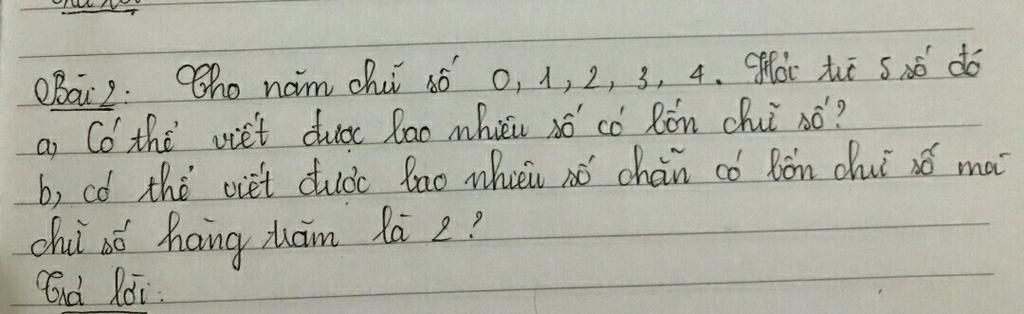 Bài 2: Cho năm chữ số 0, 1, 2, 3, 4. Hỏi từ 5 số đó
a, Có thể viết được bao nhiêu số có bốn chữ số?
b, có thể viết được bao nhiêu số chẵn có bốn chữ số mà
chữ số hàng trăm là 2?
Trả lời: